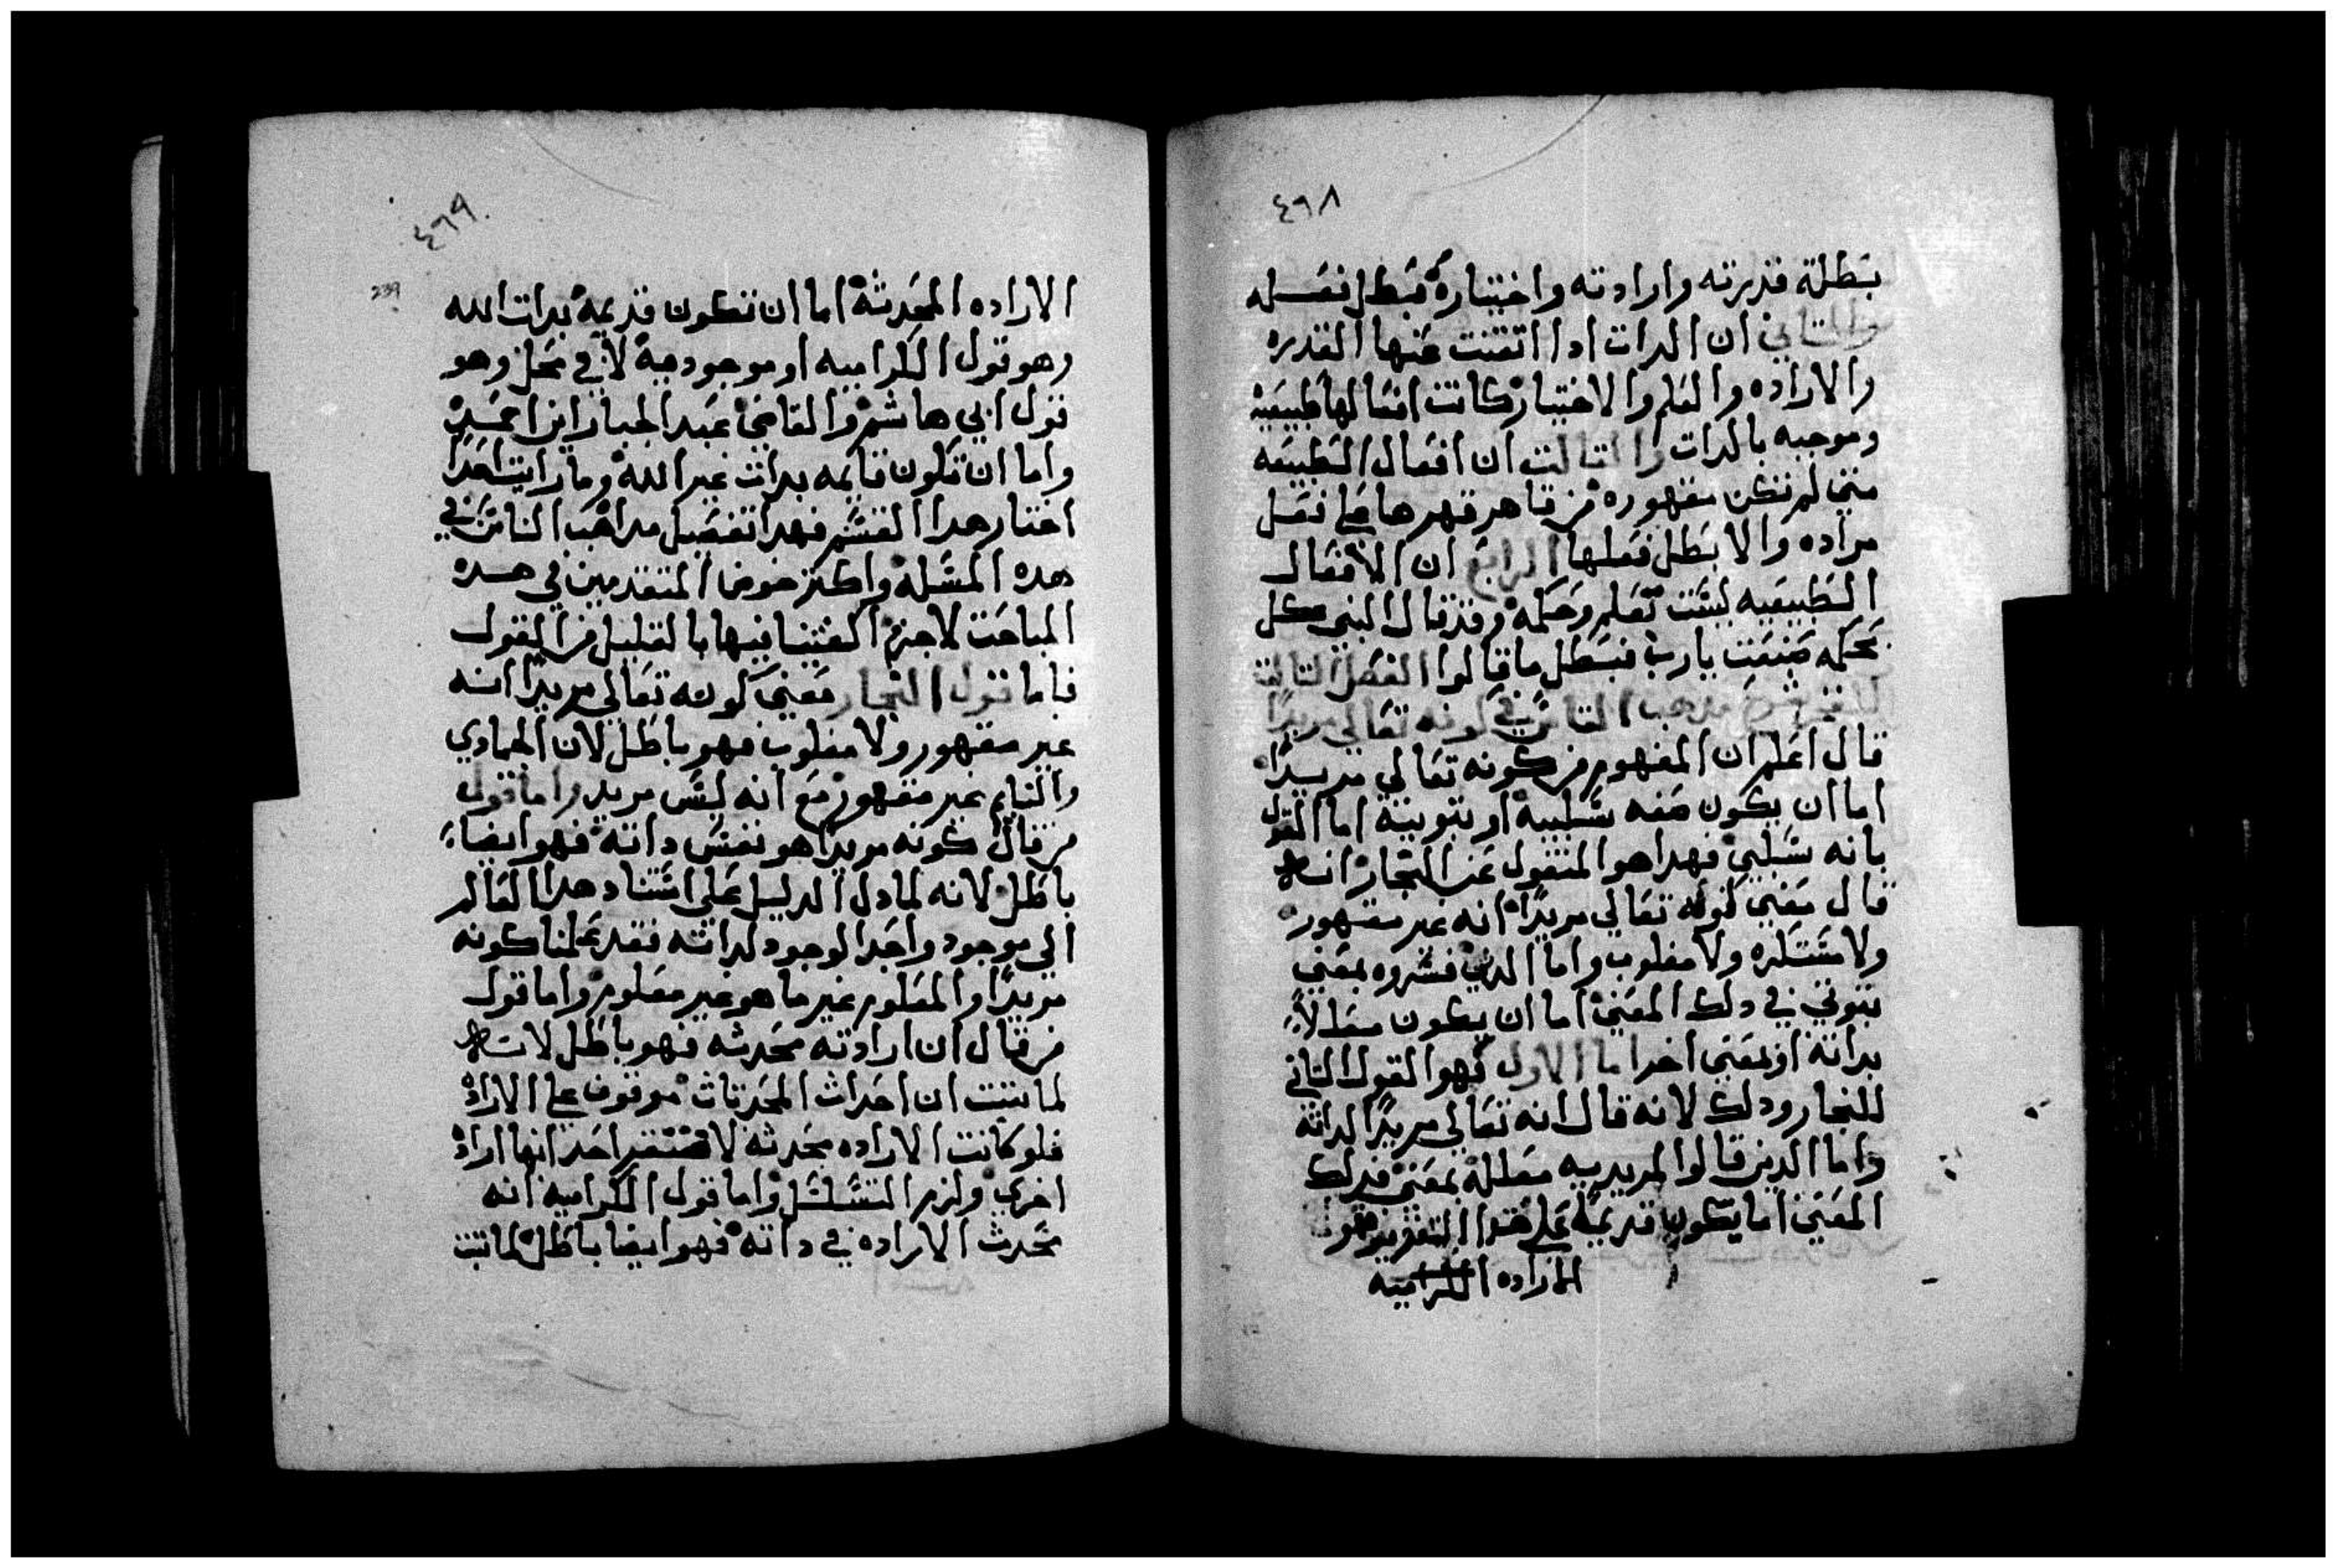 ٤٦٨
بطلة قدرته وارادته واختياره فبطل فعله
والثاني ان الدات ادا اتفنت عنها القدره
والاراده والعلم والاختيار كانت افعالها طبيعية
وموجبه بالدات والتالت ان افعال الطبيعه
متي لم تكن مقهوره من قاهر قهرها علي فعل
مراده والا بطل فعلها الرابع ان الافعال
الطبيعيه ليست تعلم وحكمه وقد قال النبي كل
بحكمه صنعت يارب فبطل ما قالوا الفصل التالت
في شرح مدهب الناس في كونه تعالي مريدًا
قال اعلم ان المفهوم من كونه تعالي مريدًا
اما ان يكون صفه سلبية او تبوتية اما القول
بانه سلبي فهدا هو المنقول عن النجار انه
قال معني كونه تعالي مريدًا انه غير مقهور
ولا مستكره ولا مغلوب واما الدين فسروه بمعني
تبوتي في دلك المعني اما ان يكون معللاً
بداته او بمعني اخر اما الاول فهو القول التاني
للنجار ودلك لانه قال انه تعالي مريدًا لداته
واما الدين قالوا المريديه معللة بمعني فدلك
المعني اما يكون قديمة علي هدا التقدير فهو
الاراده الكراميه
٤٦٩
239
الاراده المحدثة اما ان تكون قديمة بدات الله
وهو قول الكراميه او موجوده لا في محل وهو
قول ابي هاشم والقاضي عبد الجبار ابن احمد
واما ان تكون قايمه بدات غير الله وما رايت احدًا
اختار هدا القسم فهدا تفصيل مداهب الناس في
هده المسلة واكتر خوض المتقدمين في هده
المباحت لاجرم اكتفينا فيها بالقليل من القول
فاما قول النجار معني كونه تعالي مريدًا انه
غير مقهور ولا مغلوب فهو باطل لان الجمادي
والنايم غير مقهور مع انه ليس مريد واما قول
من قال كونه مريدًا هو نفس داته فهو ايضاً
باطل لانه لما دل الدليل علي استناد هدا العالم
الي موجود واجد الوجود لداته فقد علمنا كونه
مريدًا والمعلوم غير ما هو غير معلوم واما قول
من قال ان ارادته محدثه فهو باطل لانه
لما تبت ان احدات المحدتات موقوف علي الاراده
فلو كانت الاراده محدثه لافتقر احداتها اراده
اخري ولزم التسلسل واما قول الكراميه انه
تحدث الاراده في داته فهو ايضا باطل لما تبت